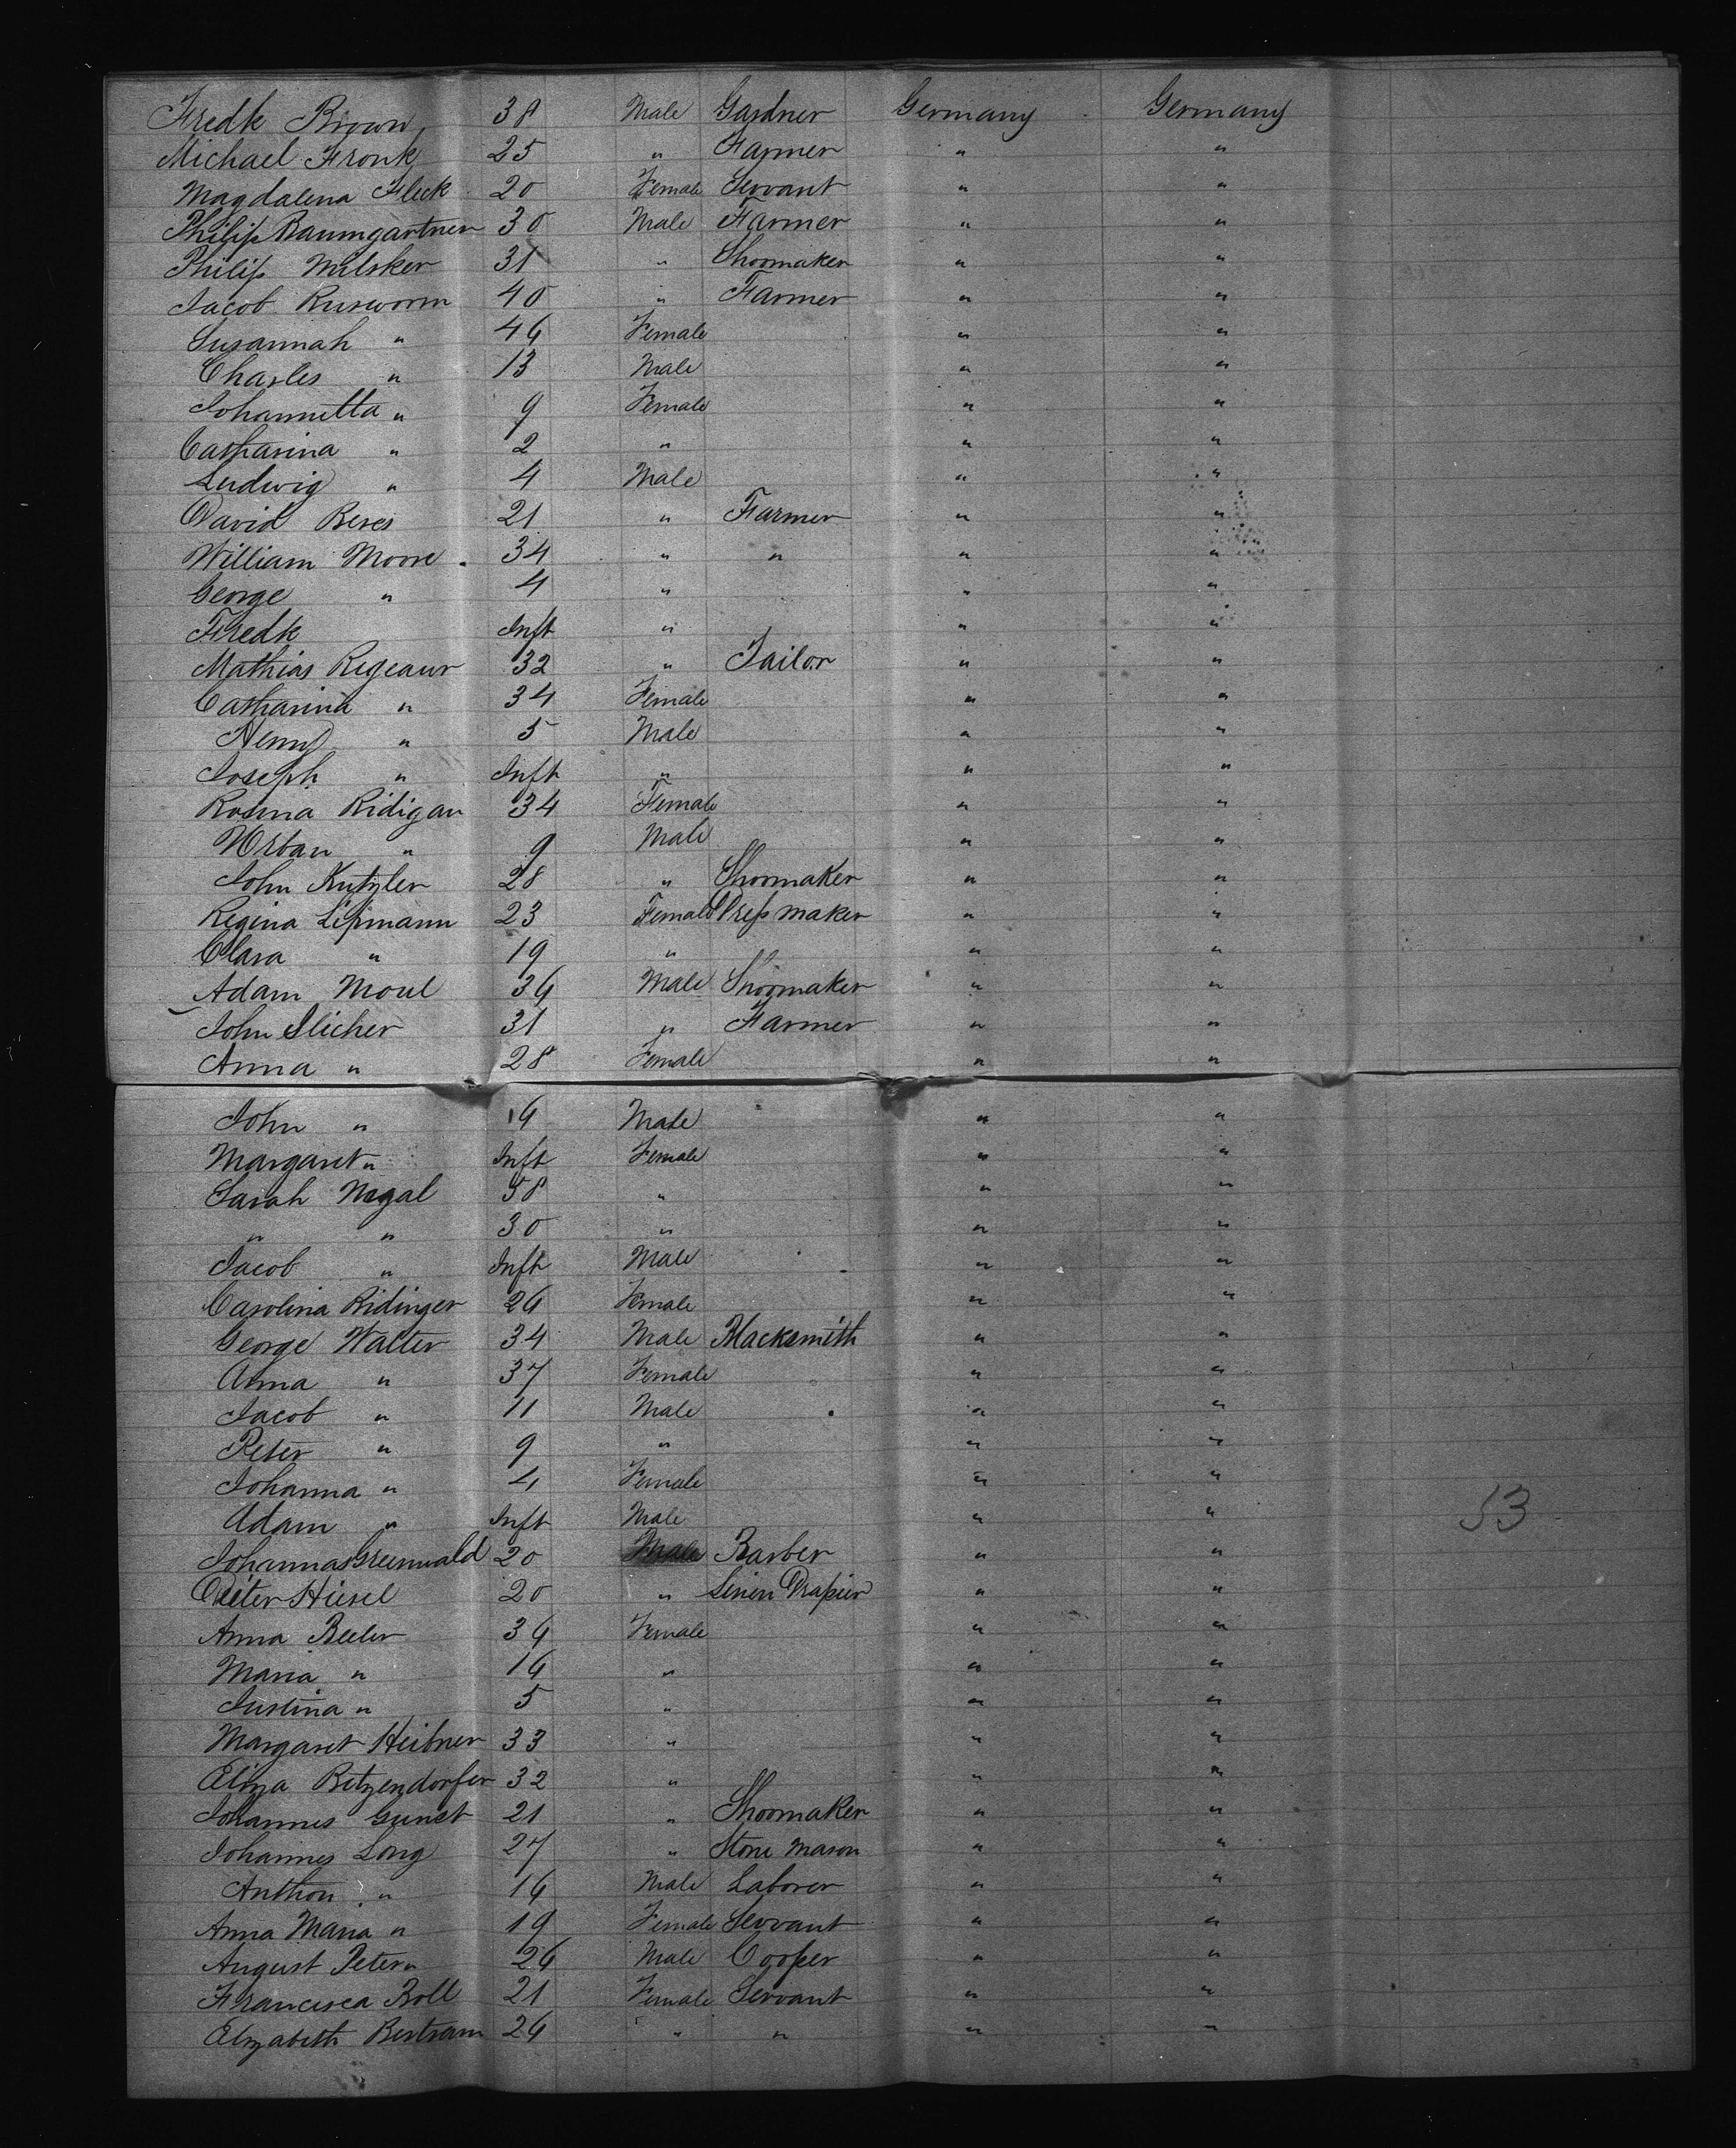 Fredk Brown 38 Male Gardner Germany Germany
Michael Fronk 25 " Farmer " "
Magdalena Fleck 20 Female Servant " "
Philip Baumgartner 30 Male Farmer " "
Philip Milsker 31 " Shoomaker " "
Jacob Rusworm 40 " Farmer " "
Susannah " 46 Female " "
Charles " 13 Male " "
Johannetta " 9 Female " "
Catharina " 2 " " "
Ludwig " 4 Male " "
David Beres 21 " Farmer " "
William Moore 34 " " " "
George " 4 " " "
Fredk Inft " " "
Mathias Regeaur 32 " Tailor " "
Catharina " 34 Female " "
Henry " 5 Male " "
Joseph " Inft " " "
Rosina Ridigau 34 Female " "
Urban " 9 Male " "
John Kutzler 28 " Shoomaker " "
Regina Lipmann 23 Female Dress maker " "
Clara " 19 " " "
Adam Moul 36 Male Shoomaker " "
John Slicher 31 " Farmer " "
Anna " 28 Female " "
John " Male " "
Margaret " Inft Female " "
Sarah Nagal 58 " " "
" " 30 " " "
Jacob " Inft Male " "
Carolina Ridinger 26 Female " "
George Walter 34 Male Blacksmith " "
Anna " 37 Female " "
Jacob " 11 Male " "
Peter " 9 " " "
Johanna " 4 Female " "
Adam " Inft Male " "
53
Johannas Greenwald 20 Male Barber " "
Peter Hiesel 20 " Linen Drapier " "
Anna Beeler 36 Female " "
Maria " 16 " " "
Justina " 5 " " "
Margaret Heibner 33 " " "
Eliza Bitzendorfer 32 " " "
Johannes Gunst 21 " Shoomaker " "
Johannes Long 27 " Stone Mason " "
Anthon " 16 Male Laborer " "
Anna Maria " 19 Female Servant " "
August Peter " 26 Male Cooper " "
Francisca Boll 21 Female Servant " "
Elizabeth Bertram 26 " " " "